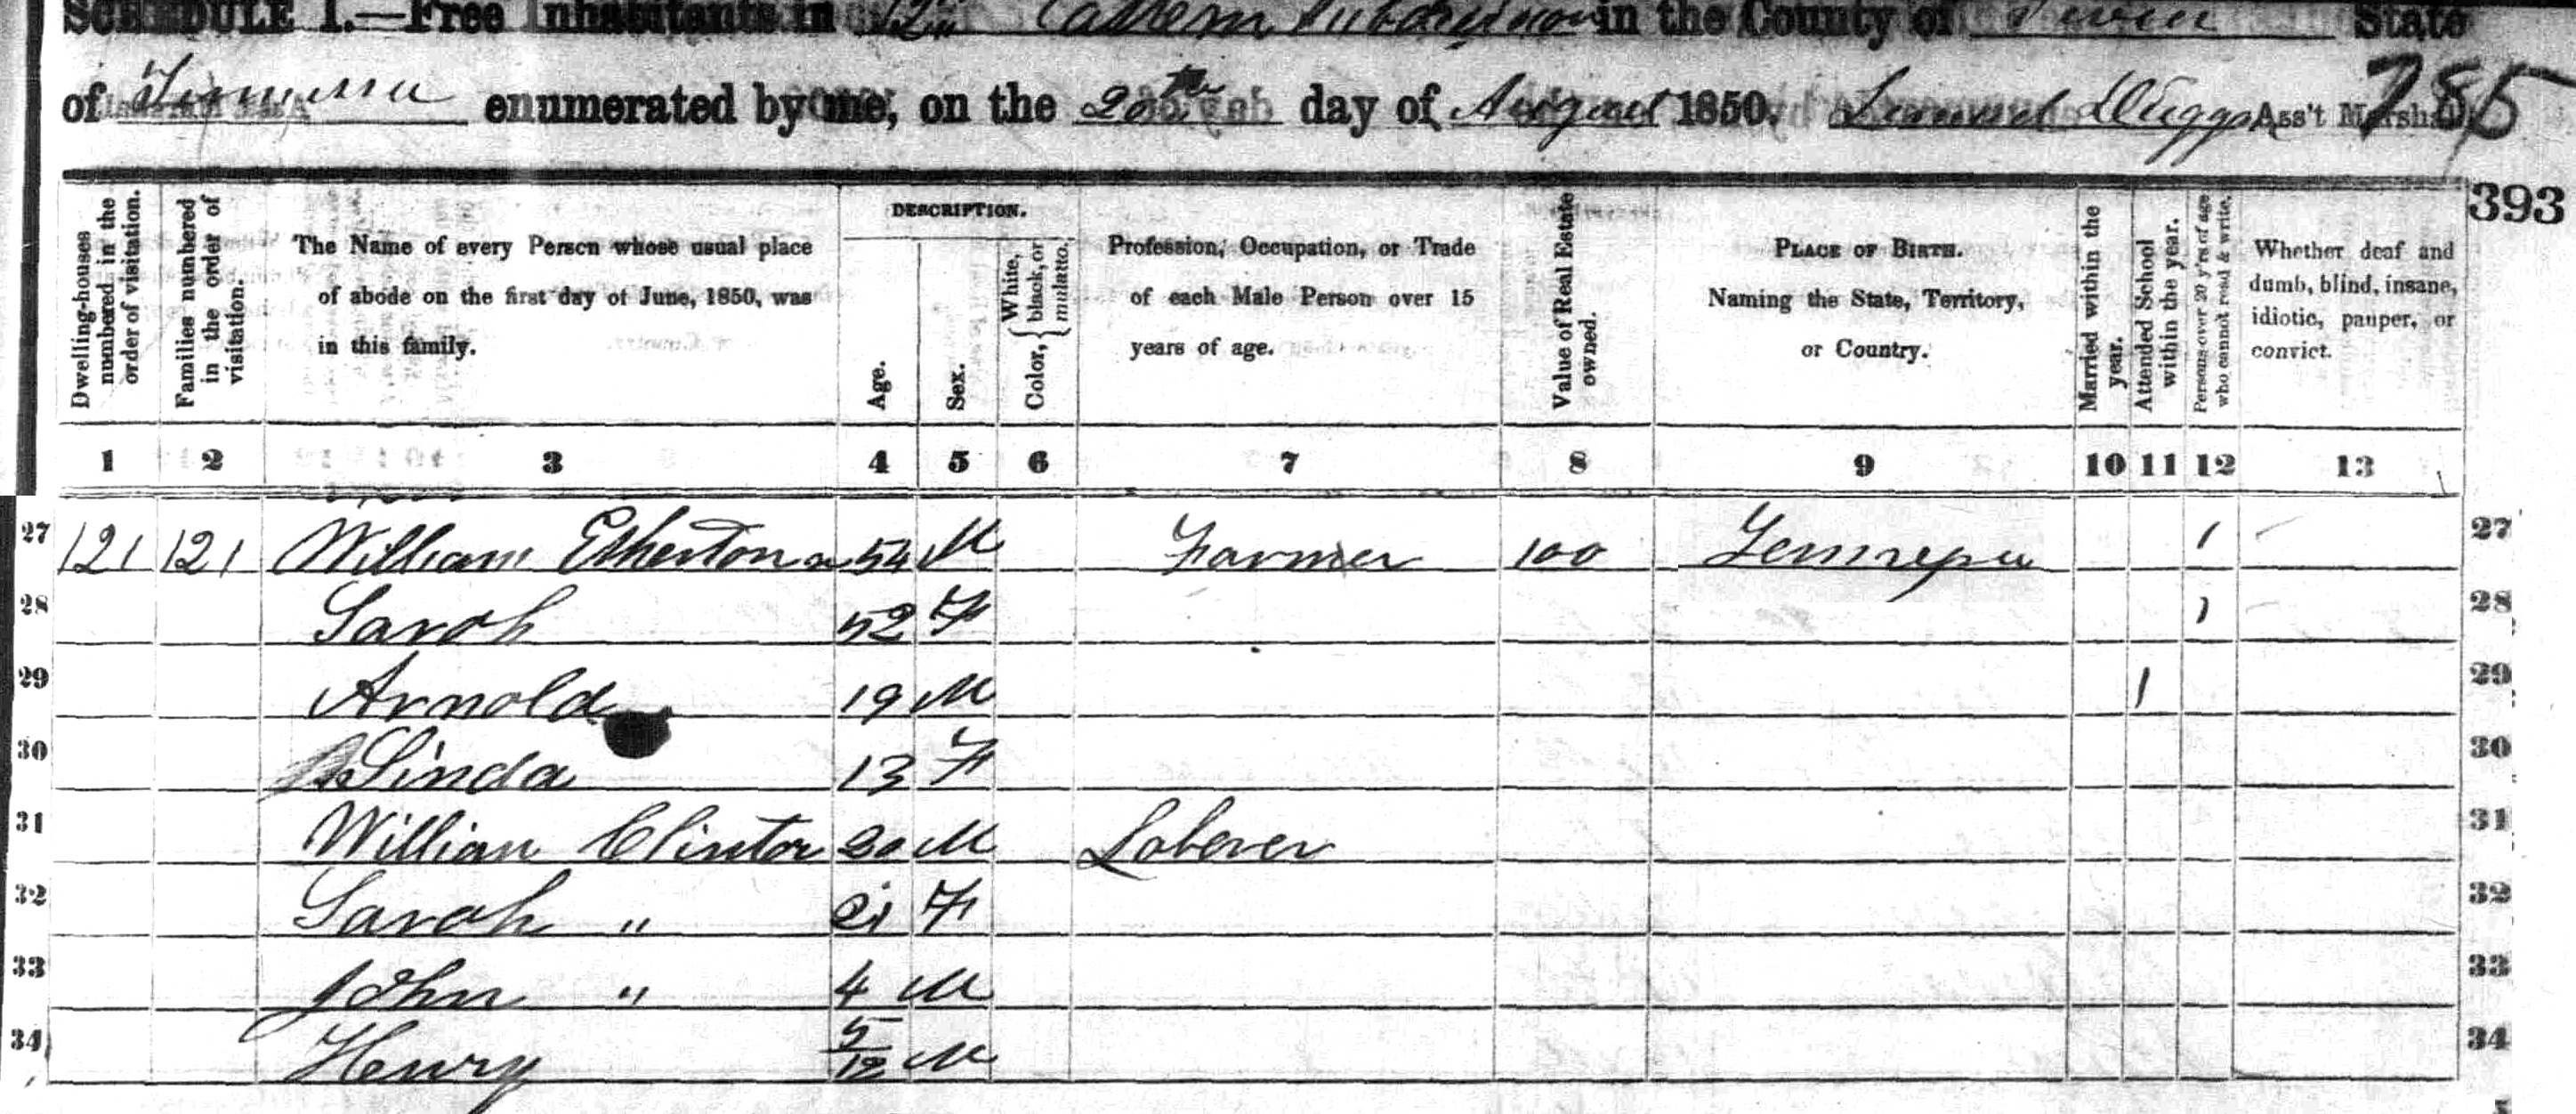 SCHEDULE I.—Free Inhabitants in 12th Eastern Subdivision in the County of State
of Tennessee enumerated by me, on the 20th day of August 1850. Lemuel Ass't Marshal
785
393
Dwelling-houses numbered in the order of visitation.
Families numbered in the order of visitation.
The Name of every Person whose usual place
of abode on the first day of June, 1850, was
in this family.
DESCRIPTION.
Age.
Sex.
Color, { White, black, or mulatto.
Profession, Occupation, or Trade
of each Male Person over 15
years of age.
Value of Real Estate owned.
PLACE OF BIRTH.
Naming the State, Territory,
or Country.
Married within the year.
Attended School within the year.
Persons over 20 y'rs of age who cannot read & write.
Whether deaf and
dumb, blind, insane,
idiotic, pauper, or
convict.
1 2 3 4 5 6 7 8 9 10 11 12 13
27 121 121 William Etherton 54 M Farmer 100 Tennessee 1 27
28 Sarah 52 F 1 28
29 Arnold 19 M 1 29
30 Linda 13 F 30
31 William Clinton 20 M Laberer 31
32 Sarah " 21 F 32
33 John " 4 M 33
34 Henry 5/12 M 34